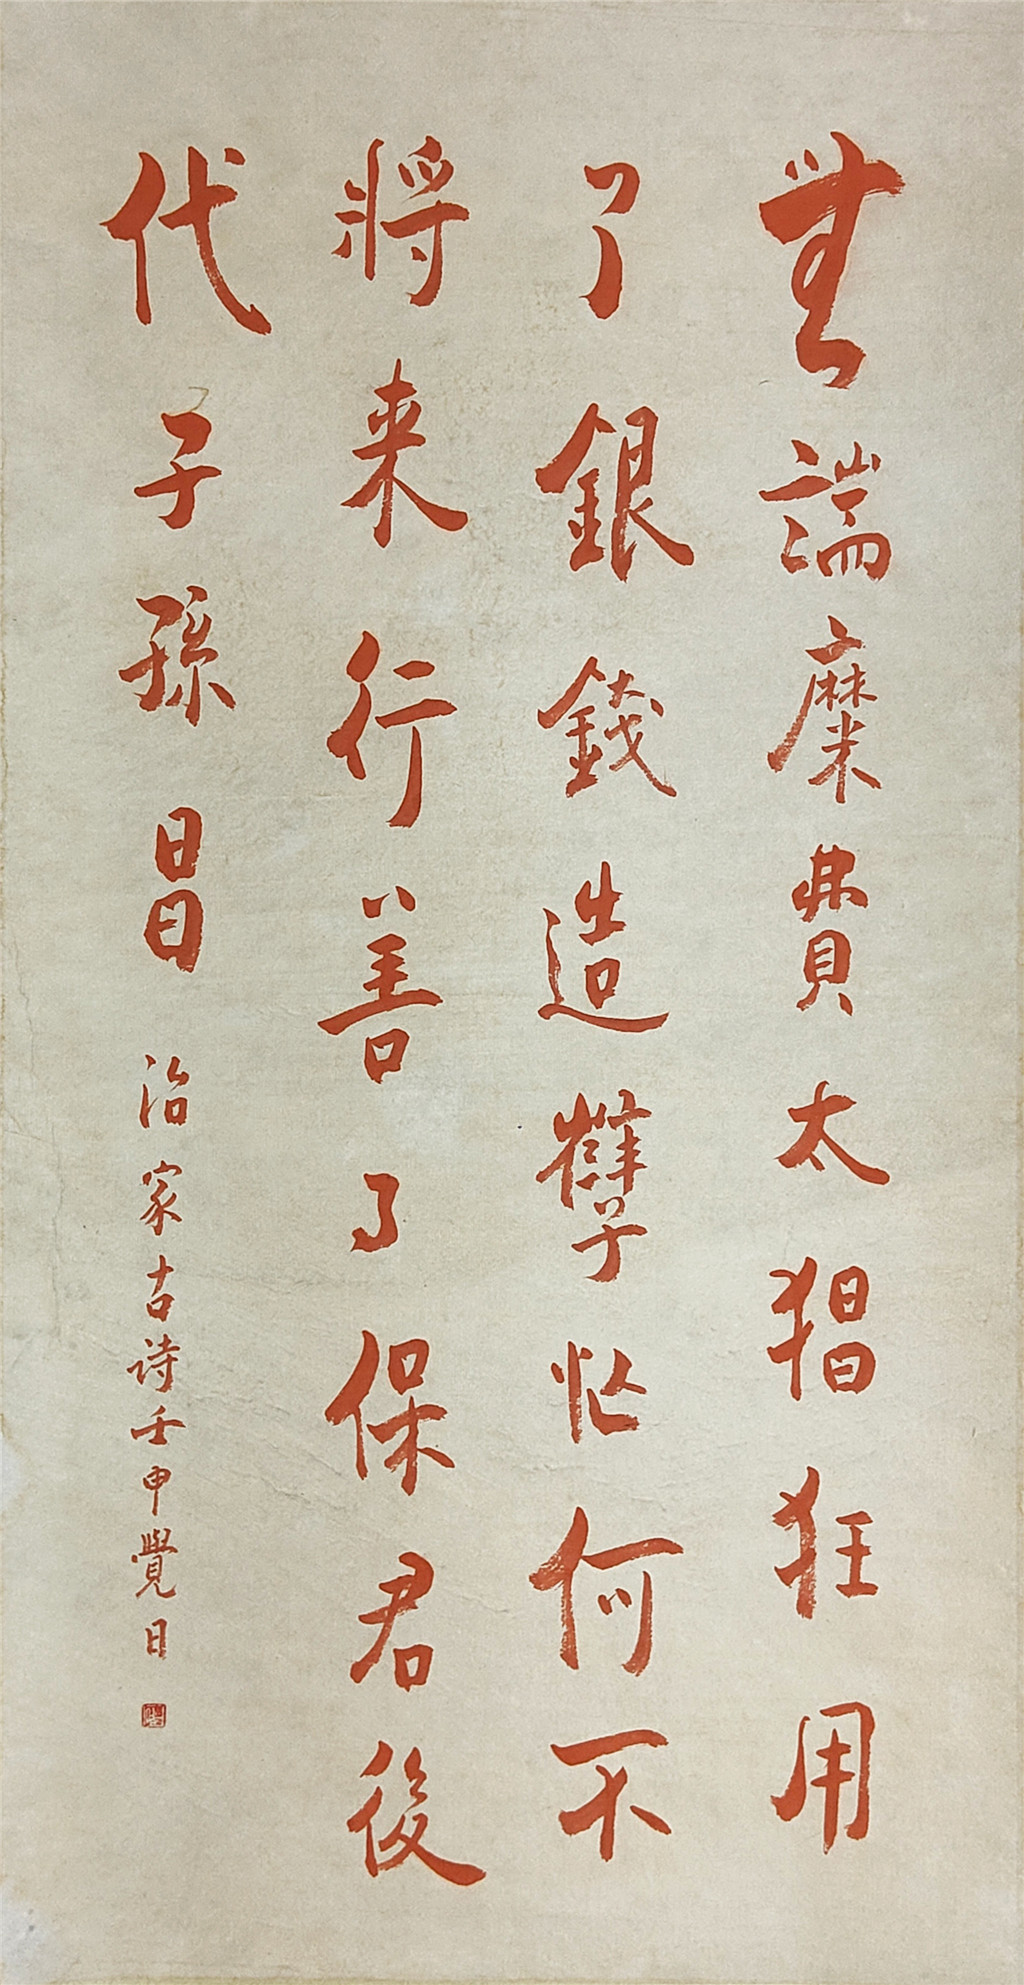 無端糜費太猖狂用
了銀錢造孽忙何不
將来行善了保君後
代子孫昌
治家古诗壬申覺日